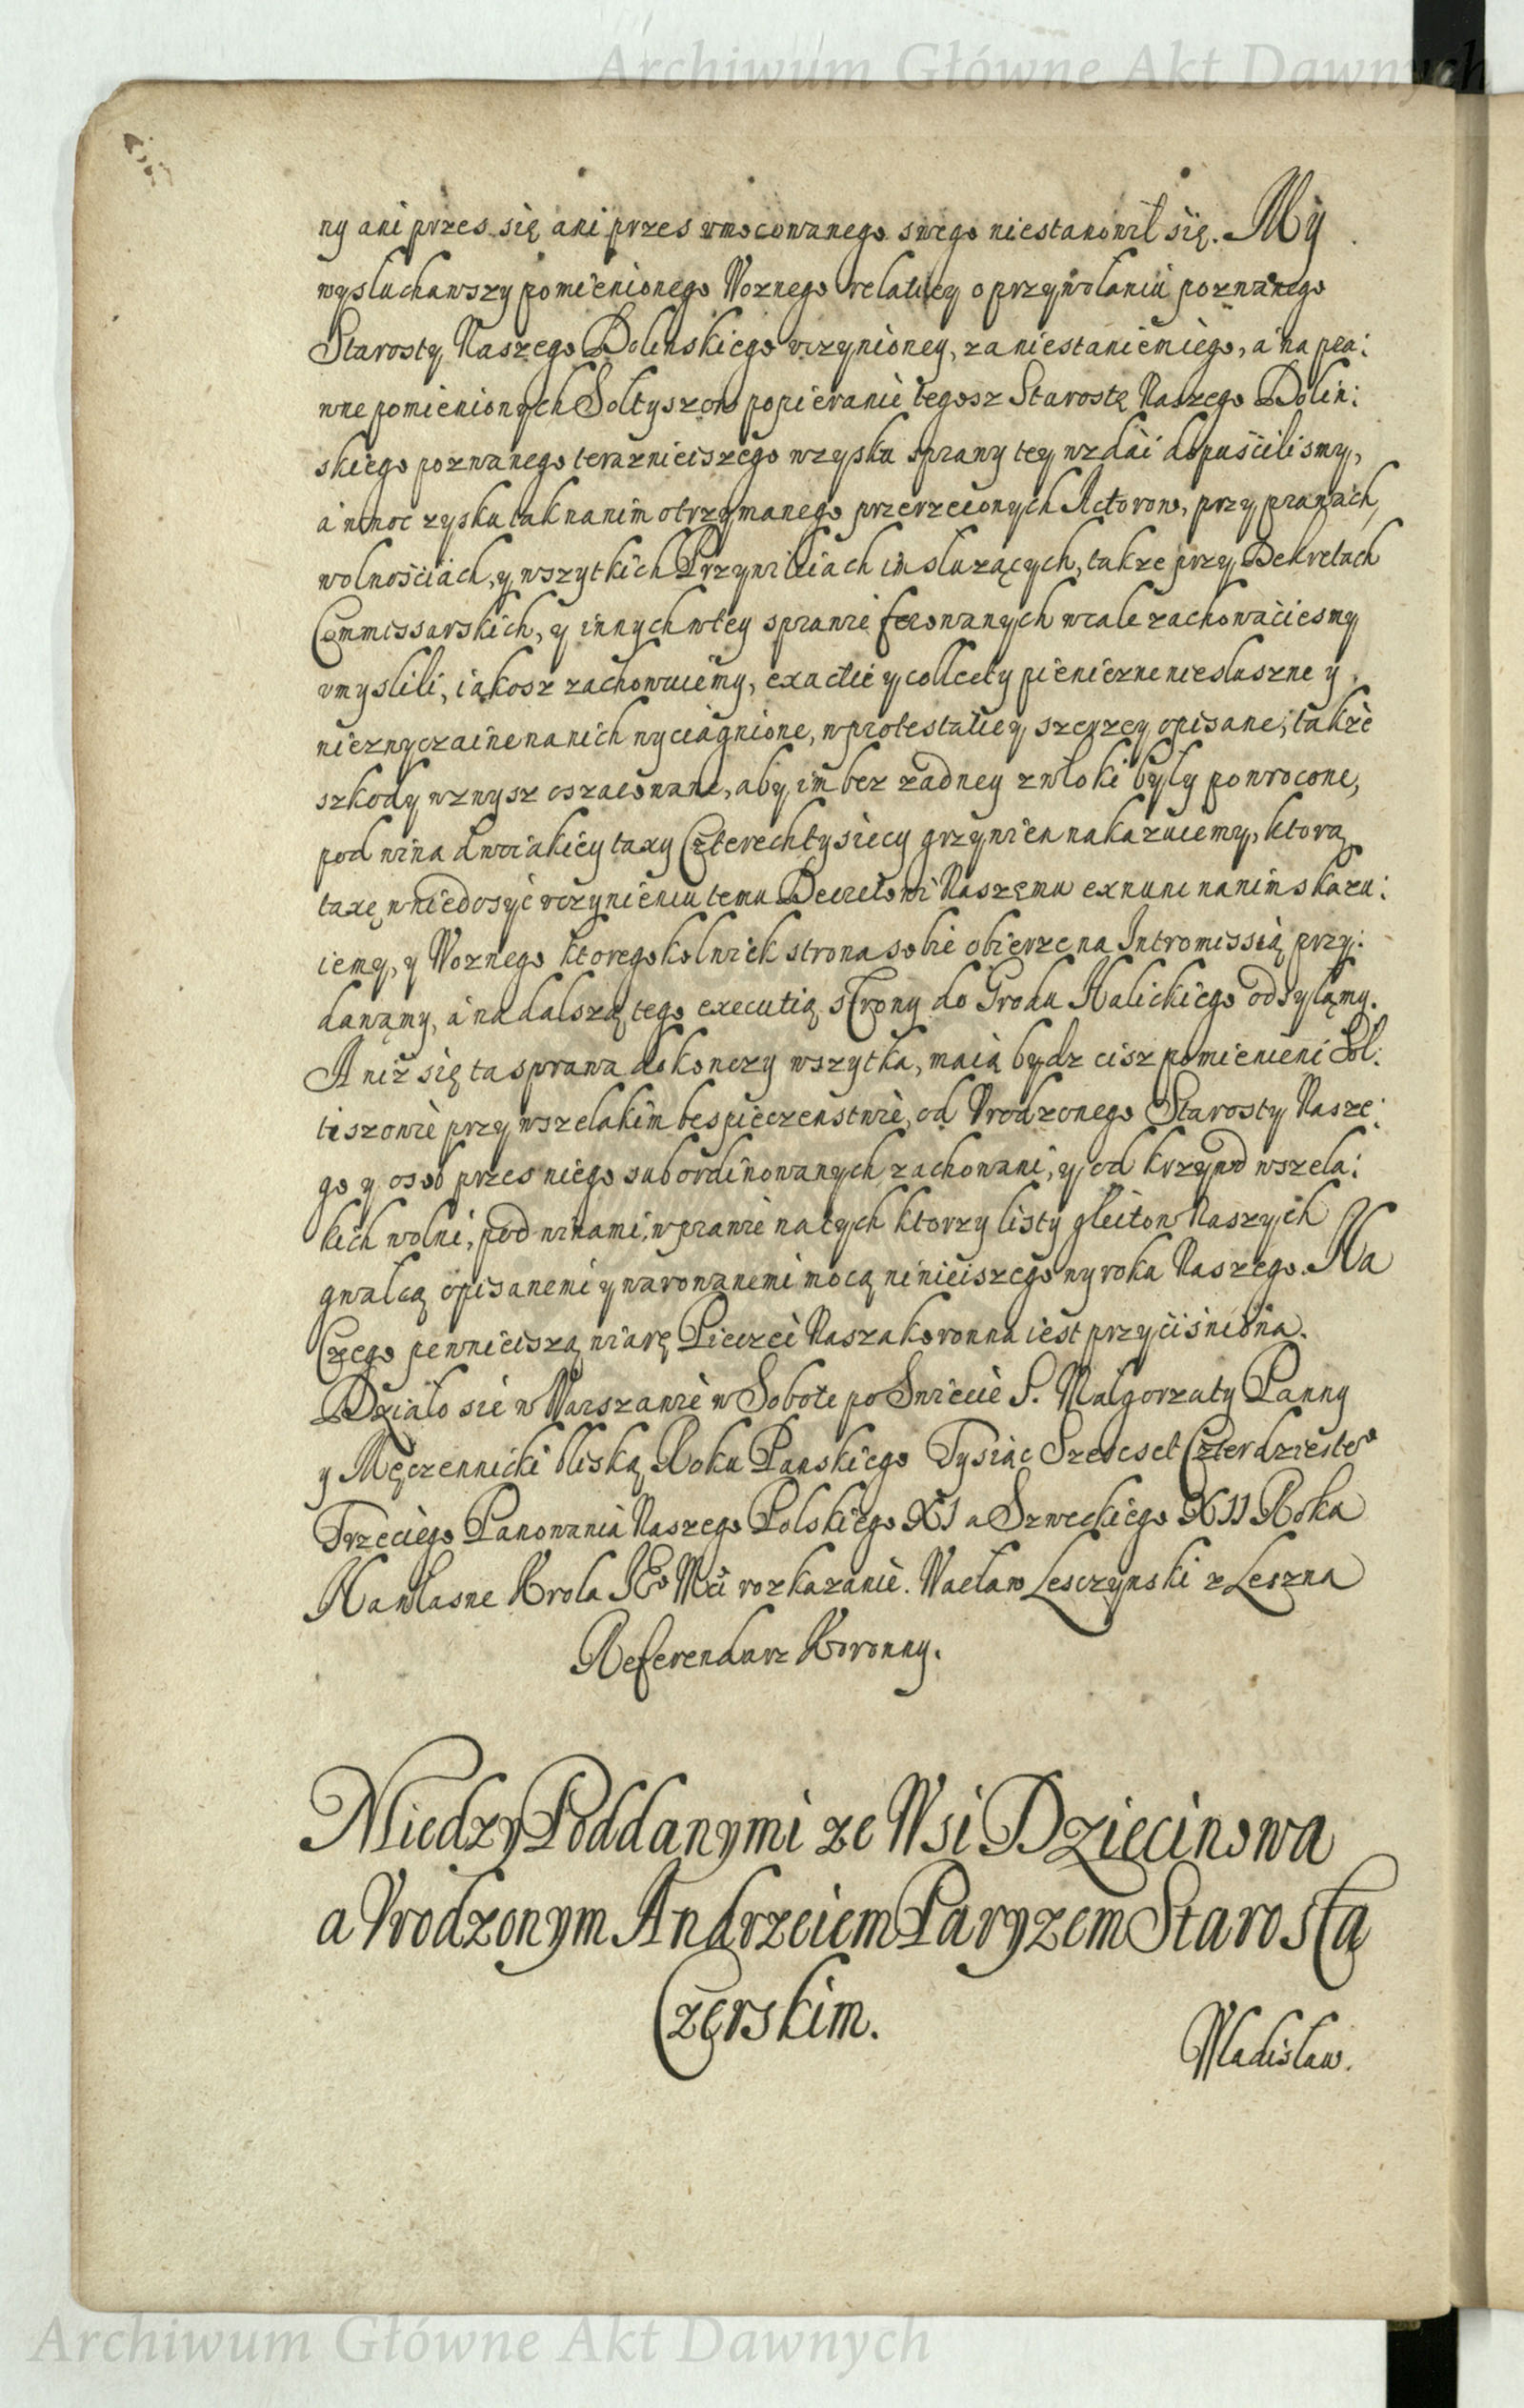 Archiwum Główne Akt Dawnych
ny ani przes się ani przes vmocowanego swego niestanowił się. My
wysluchawszy pomienionego Woznego relatiey o przywolaniu poznanego
Starosty Naszego Dolinskiego vczynioney, za niestaniem iego, a na pra:
wne pomienionych Soltyszow popieranie tegosz Starostę Naszego Dolin:
skiego poznanego teraznieiszego wzysku sprawy tey wzdać dopuscilismy,
a wmoc zysku tak nanim otrzymanego przerzeczonych Actorow, przy prawach,
wolnosciach, y wszytkich Przywileiach im sluzących, takze przy Dekretach
Commissarskich, y innych wtey sprawie ferowanych wcale zachowaciesmy
vmyslili, iakosz zachowuiemy, exactie y collecty pieniezne niesluszne y
niezwyczaine na nich wyciągnione, w protestatiey szerzey opisane, takze
szkody wzwysz oszacowane, aby im bez zadney zwloki były powrocone,
pod winą dwoiakiey taxy Czterech tysiecy grzywien nakazuiemy, ktorą
taxę w niedosyc vczynieniu temu Decretowi Naszemu exnunc nanim skazu:
iemy, y Woznego ktoregokolwiek strona sobie obierze na Intromissią przy:
dawamy, a na dalszą tego executią strony do Grodu Halickiego odsyłamy.
A niz się ta sprawa dokonczy wszytka, maią bydz cisz pomienieni Sol:
tiszowie przy wszelakim bespieczenstwie, od Vrodzonego Starosty Nasze:
go y osob przes niego subordinowanych zachowani, y od krzywd wszela:
kich wolni, pod winami, w prawie na tych ktorzy listy gleitow Naszych
gwałcą opisanemi y warowanemi mocą ninieiszego wyroku Naszego. Na
Czego pewnieiszą wiarę Pieczęć Nasza koronna iest przycisniona.
Dzialo sie w Warszawie w Sobote po Swiecie S. Malgorzaty Panny
y Męczennicki bliską Roku Panskiego Tysiąc Szescset Czterdziesteo
Trzeciego Panowania Naszego Polskiego XI a Szweckiego XII Roku
Na własne Krola JEo Mci rozkazanie. Wacław Lesczynski z Leszna
Referendarz Koronny.
Miedzy Poddanymi ze Wsi Dziecinowa
a Vrodzonym Andrzeiem Paryzem Starostą
Czerskim.
Wladislaw.
Archiwum Główne Akt Dawnych